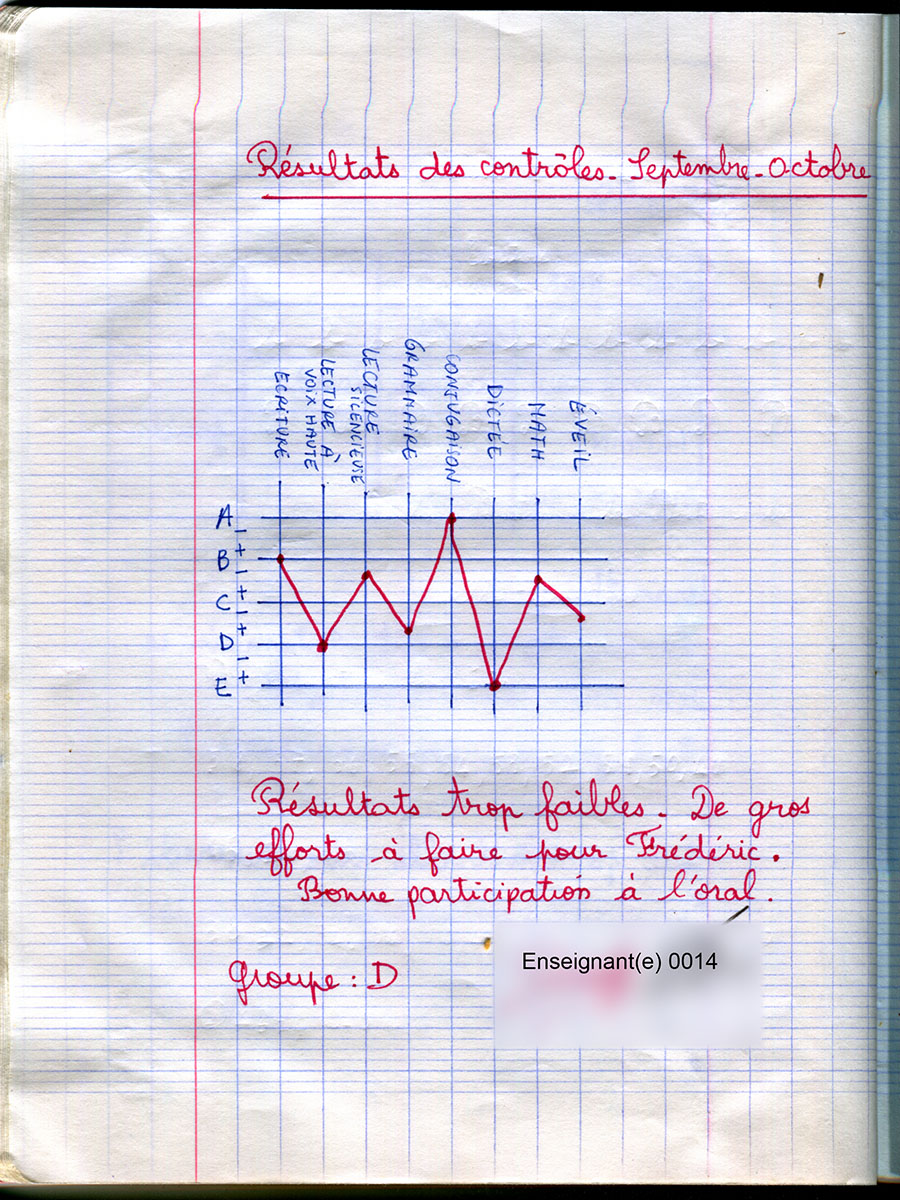 Résultats des contrôles - Septembre - Octobre
ECRITURE
LECTURE À
VOIX HAUTE
LECTURE
SILENCIEUSE
GRAMMAIRE
CONJUGAISON
DICTÉE
MATH
ÉVEIL
A -
+
B -
+
C -
+
D -
+
E
Résultats trop faibles. De gros
efforts à faire pour Frédéric.
Bonne participation à l'oral.
Groupe : D
Enseignant(e) 0014